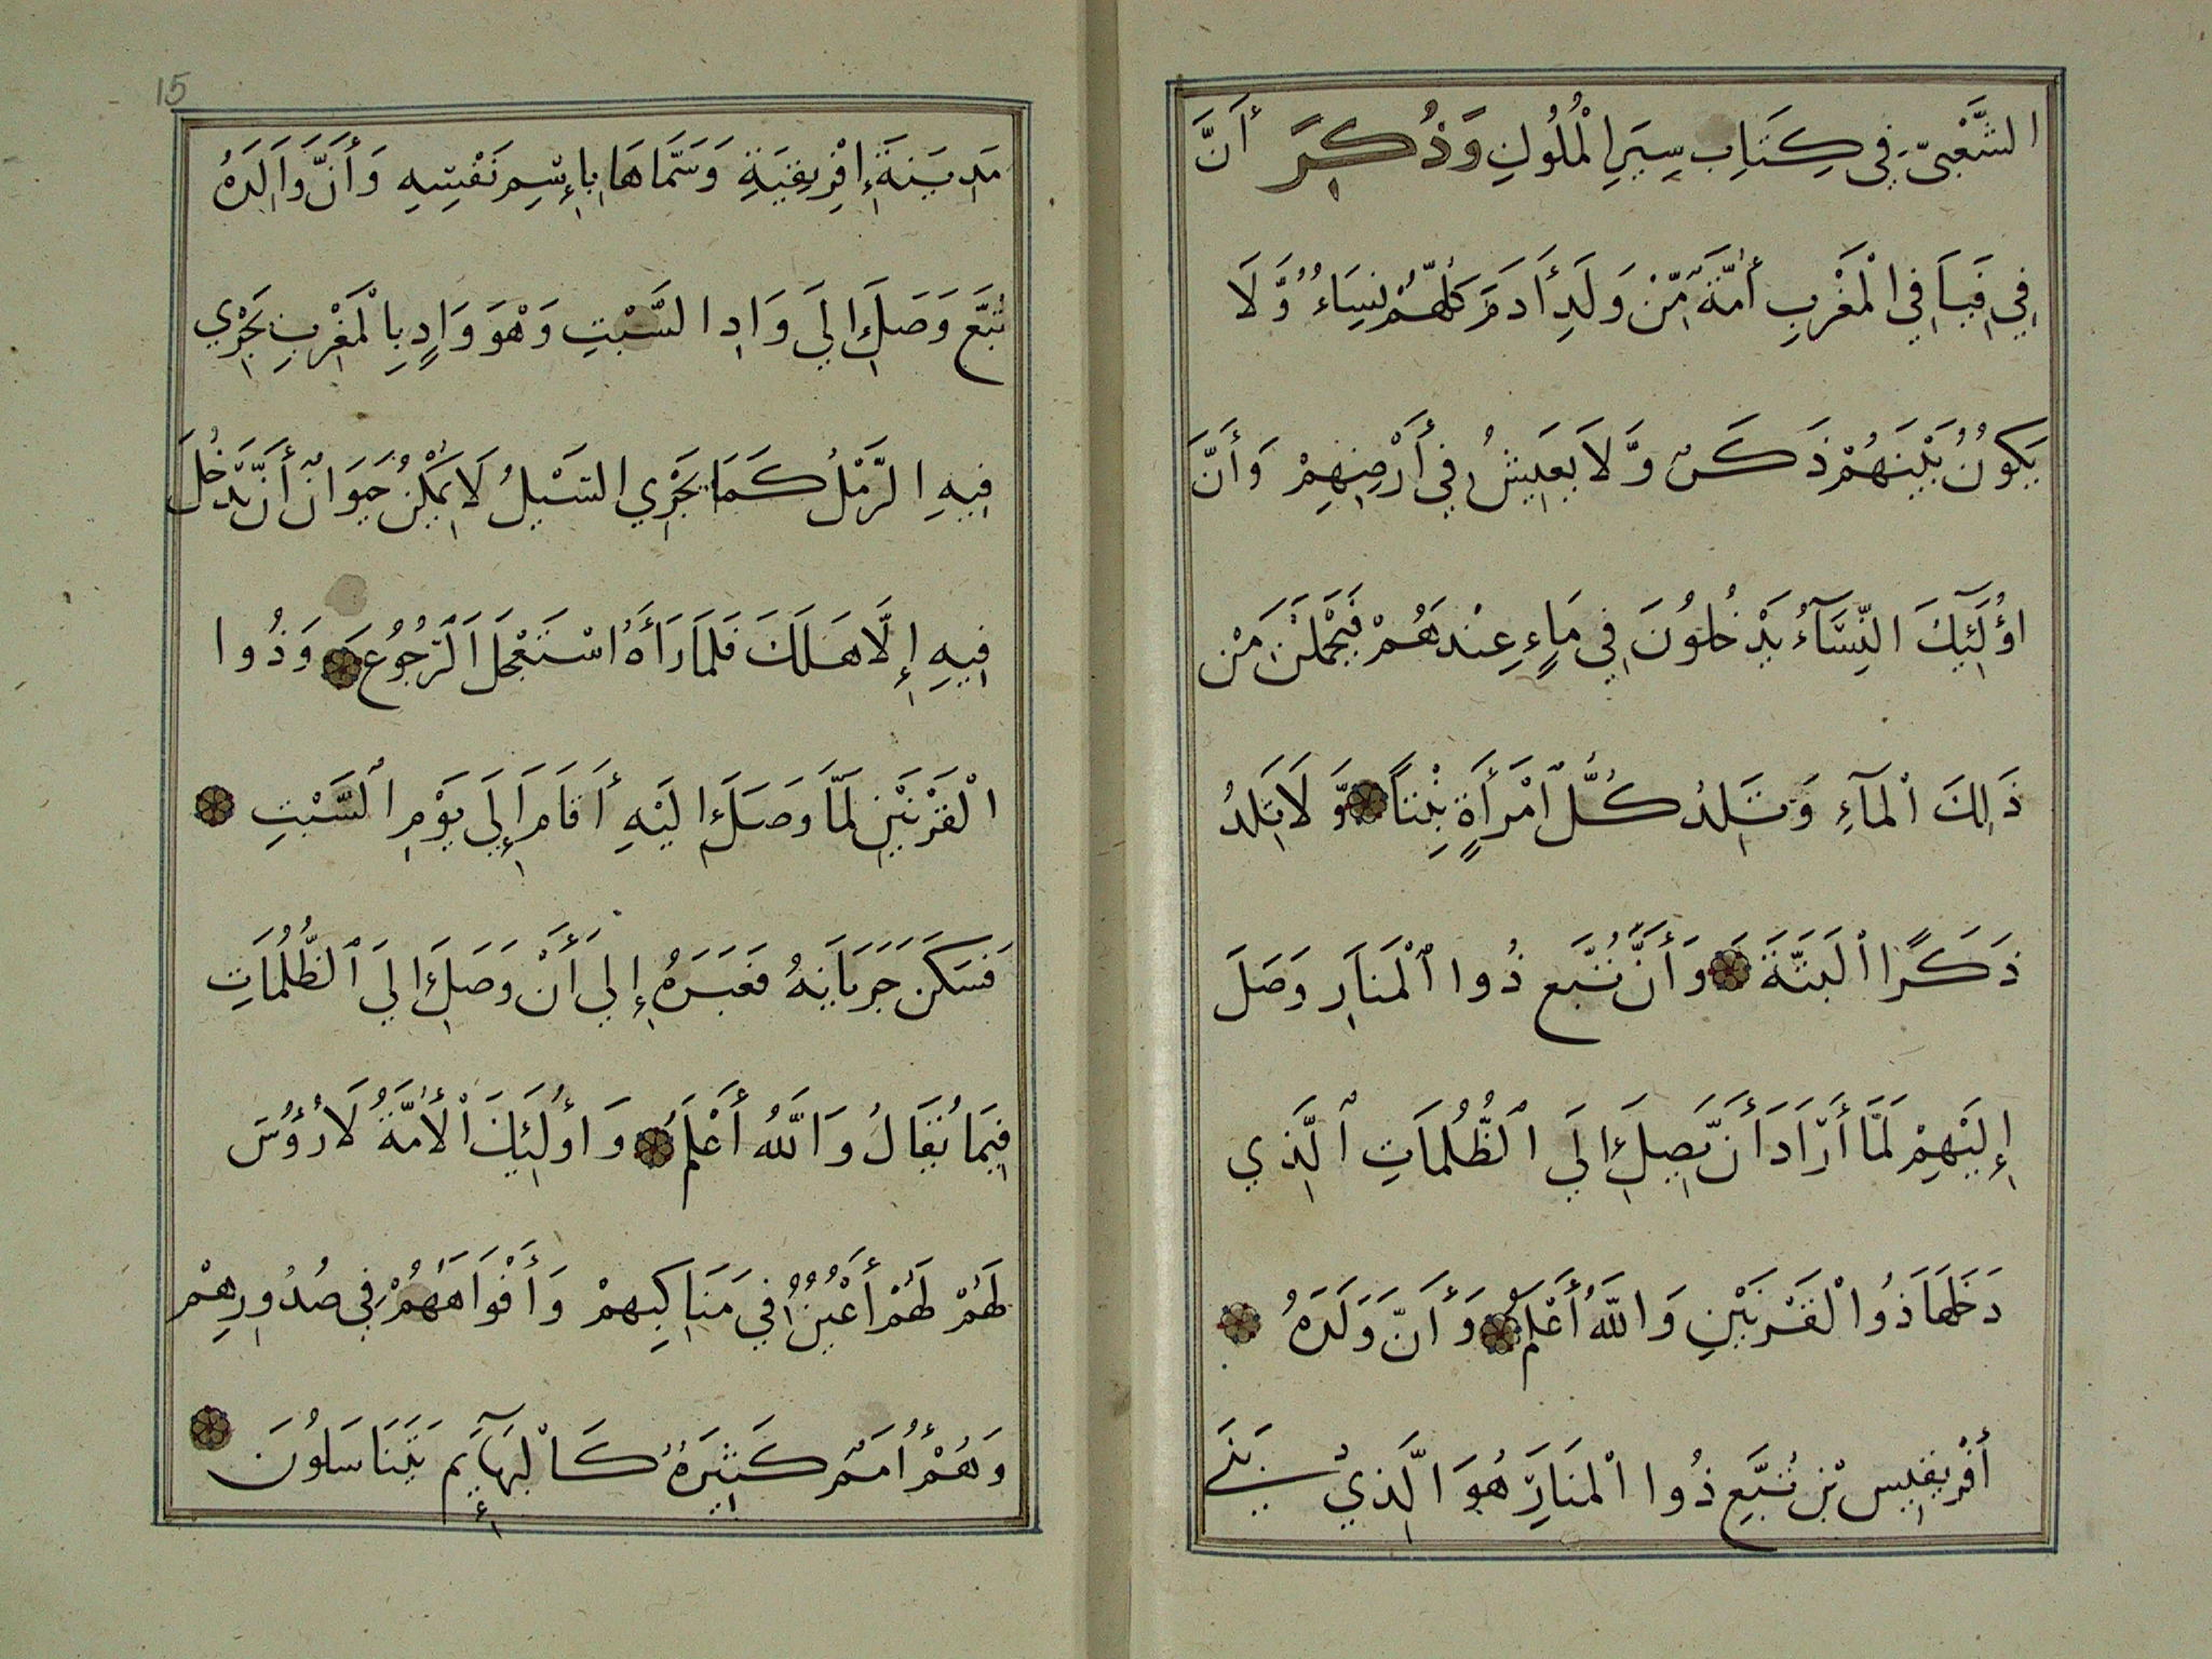 الشَّعْبِيّ فِي كِتَابِ سِيَرِ الْمُلُوكِ وَذُكِرَ أَنَّ
فِي فَيَافِي الْمَغْرِبِ أُمَّةً مِّنْ وَلَدِ أَدَمَ كُلُّهُمْ نِسَاءٌ وَّلَا
يَكُونُ بَيْنَهُمْ ذَكَرٌ وَّلَا يَعِيشُ فِي أَرْضِهِمْ وَأَنَّ
اؤُلَئِكَ النِّسَآءُ يَدْخُلُونَ فِي مَاءٍ عِنْدَهُمْ فَيَحْمَلْنَ مَنْ
ذَلِكَ الْمَآءِ وَتَلِدُ كُلُّ امْرَأَةٍ بِنْتاً وَّلَا تَلِدُ
ذَكَرًا الْبَتَّةَ وَأَنَّ تُبَّع ذُوا الْمَنَارِ وَصَلَ
إِلَيْهِمْ لَمَّا أَرَادَ أَنْ يَّصِلَ إِلَي الظُّلُمَاتِ الَّذِي
دَخَلَهَا ذُوا لْقَرْنَيْنِ وَاللهُ أَعْلَمُ وَأَنَّ وَلَدَهُ
أَفْرِيقِيس بْن تُبَّعِ ذُوا الْمَنَارِ هُوَ الَّذِي بَنَے
مَدِينَةَ إِفْرِيقِيَةِ وَسَمَّاهَا بِإِسْمِ نَفْسِهِ وَأَنَّ وَالِدَهُ
تُبَّع وَصَلَ إِلَي وَادِ السَّبْتِ وَهْوَ وَادٍ بِالْمَغْرِبِ يَجْرِي
فِيهِ الرَّمْلُ كَمَا يَجْرِي السَّيْلُ لَا يُمْكِنُ حَيَوَانٌ أَنْ يَّدْخُلَ
فِيهِ إِلَّا هَلَكَ فَلَمَا رَأَهُ اسْتَعْجَلَ الرُّجُوعَ وَذُوا
الْقَرْنَيْنِ لَمَّا وَصَلَ إِلَيْهِ أَقَامَ إِلَي يَوْمِ السَّبْتِ
فَسَكَنَ جَرَيَانِهُ فَعَبَرَهُ إِلَي أَنْ وَصَلَ إِلَي الظُّلُمَاتِ
فِيمَا يُقَالُ وَاللهُ أَعْلَمُ وَاؤُلَئِكَ الْأُمَّةُ لَا رُؤُسَ
لَهُمْ لَهُمْ أَعْيُنٌ فِي مَنَاكِبِهِمْ وَأَفْوَاهَهُمْ فِي صُدُورِهِمْ
وَهُمْ أُمَمٌ كَثِيرَةٌ كَالْبَهَآئِمِ يَتَنَاسَلُونَ
15